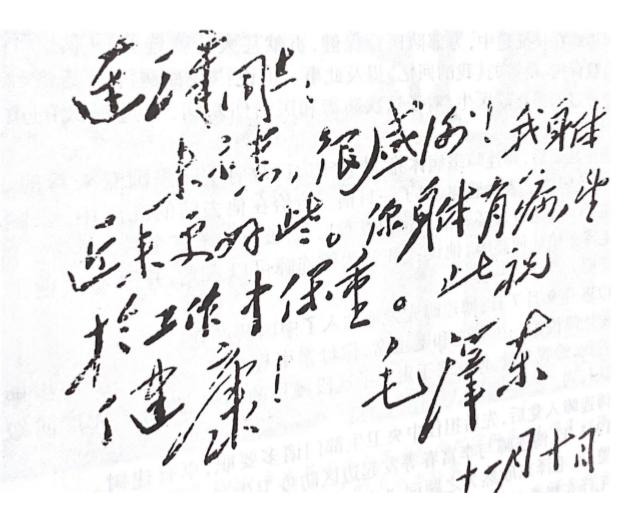 连暲同志,
来信,很感谢!我身体
近来更好些。你身体有病,望
于工作中保重。此祝
健康! 毛泽东
月十日